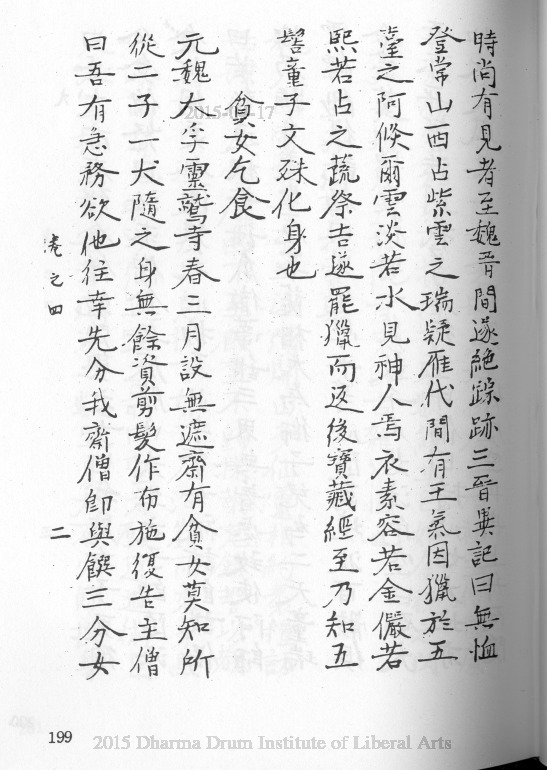 時尚有見者至魏晉間遂絕踪跡三晉異記曰無恤
登常山西占紫雲之瑞疑雁代間有王氣因獵於五
臺之阿倏爾雲淡若水見神人焉衣素容若金儼若
熙若占之蔬祭吉遂罷獵而返後寶藏經至乃知五
髻童子文殊化身也
貧女乞食
元魏大孚靈鷲寺春三月設無遮齋有貧女莫知所
從二子一犬隨之身無餘資剪髮作布施復告主僧
曰吾有急務欲他往幸先分我齋僧即與饌三分女
卷之四
二
199
2015-04-17
2015 Dharma Drum Institute of Liberal Arts